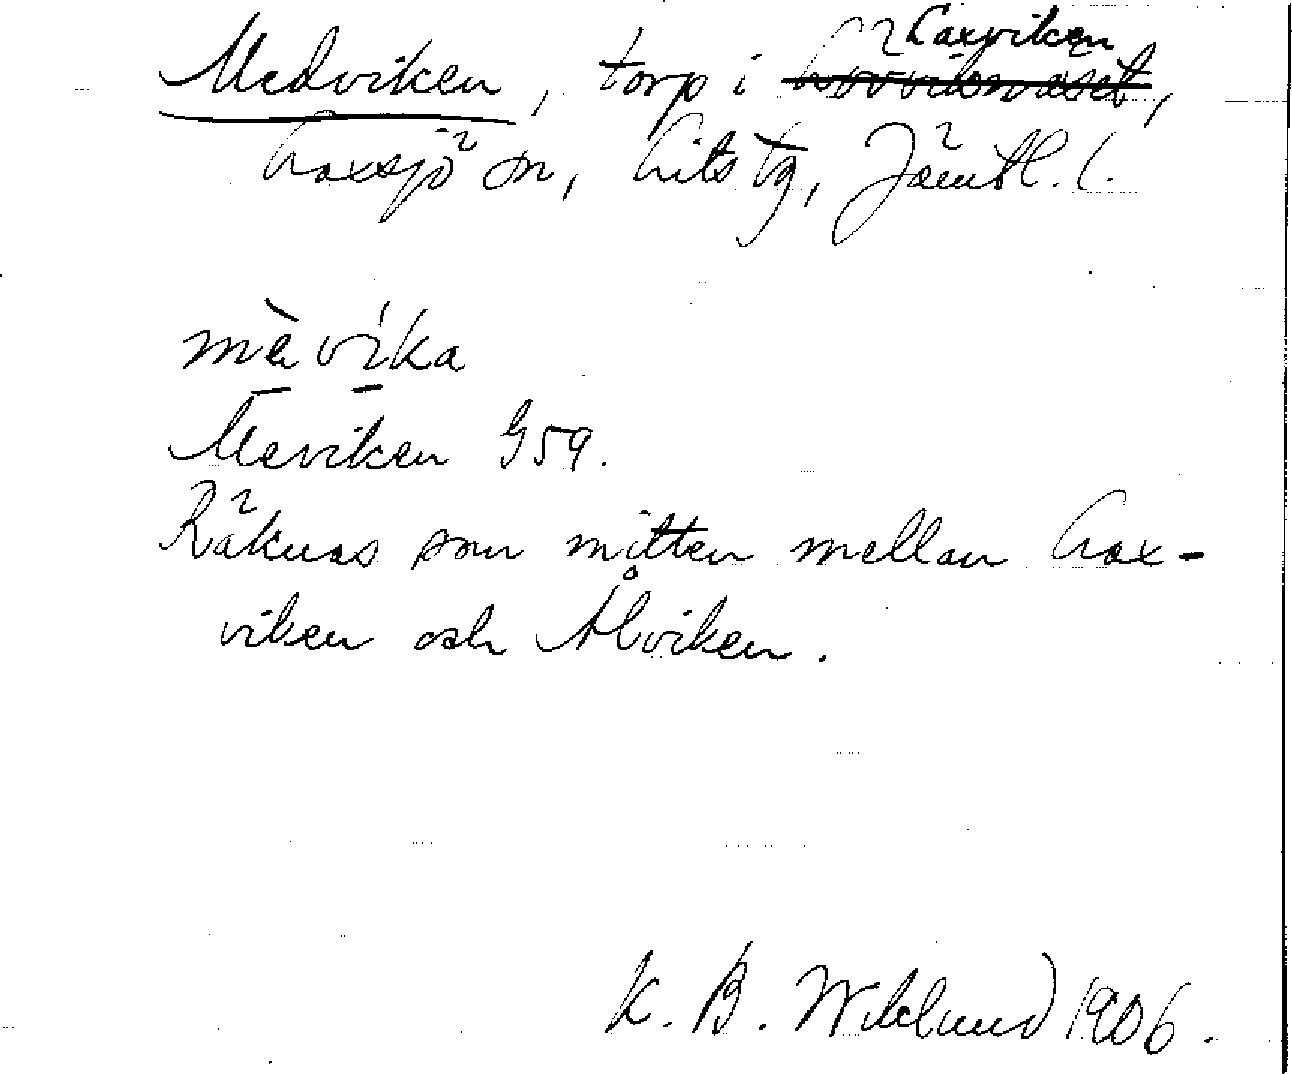 Medviken, torp i Laxviken,
Laxsjö sn, Lits tg, Jämtl. l.
mè̱ ví̱ka
Meviken G59.
Räknas som mitten mellan Lax-
viken och Ålviken.
K. B. Wiklund 1906.